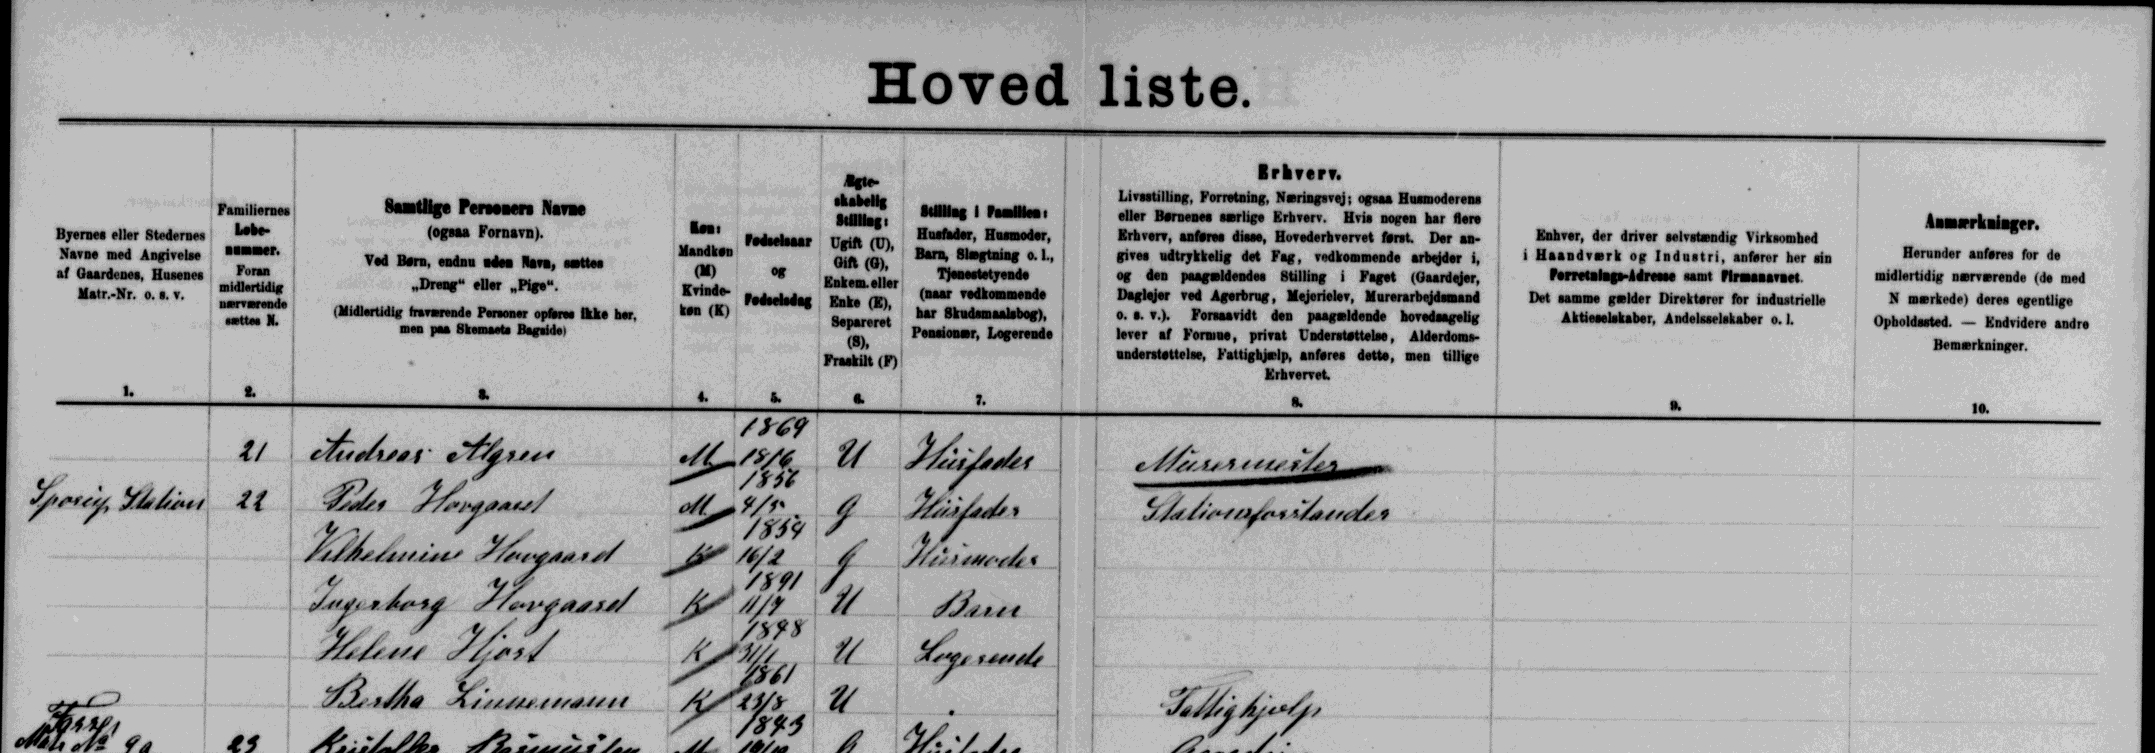 Hoved liste.
Byernes eller Stedernes
Navne med Angivelse
af Gaardenes, Husenes
Matr.-Nr. o. s. v.
1.
Familiernes
Løbe-
nummer.
Foran
midlertidig
nærværende
sættes N.
2.
Samtlige Personers Navne
(ogsaa Fornavn).
Ved Børn, endnu uden Navn, sættes
„Dreng“ eller „Pige“.
(Midlertidig fraværende Personer opføres ikke her,
men paa Skemaets Bagside)
3.
Køn:
Mandkøn
(M)
Kvinde-
køn (K)
4.
Fødselsaar
og
Fødselsdag
5.
Ægte-
skabelig
Stilling:
Ugift (U),
Gift (G),
Enkem. eller
Enke (E),
Separeret
(S),
Fraskilt (F)
6.
Stilling i Familien:
Husfader, Husmoder,
Barn, Slægtning o. l.,
Tjenestetyende
(naar vedkommende
har Skudsmaalsbog),
Pensionær, Logerende
7.
Erhverv.
Livsstilling, Forretning, Næringsvej; ogsaa Husmoderens
eller Børnenes særlige Erhverv. Hvis nogen har flere
Erhverv, anføres disse, Hovederhvervet først. Der an-
gives udtrykkelig det Fag, vedkommende arbejder i,
og den paagældendes Stilling i Faget (Gaardejer,
Daglejer ved Agerbrug, Mejerielev, Murerarbejdsmand
o. s. v.). Forsaavidt den paagældende hovedsagelig
lever af Formue, privat Understøttelse, Alderdoms-
understøttelse, Fattighjælp, anføres dette, men tillige
Erhvervet.
8.
Enhver, der driver selvstændig Virksomhed
i Haandværk og Industri, anfører her sin
Forretnings-Adresse samt Firmanavnet.
Det samme gælder Direktører for industrielle
Aktieselskaber, Andelsselskaber o. l.
9.
Anmærkninger.
Herunder anføres for de
midlertidig nærværende (de med
N mærkede) deres egentlige
Opholdssted. — Endvidere andre
Bemærkninger.
10.
21 Andreas Algren M 1869 18/6 U Husfader Murermester
Sporup Station 22 Peder Hovgaard M 1856 4/5 G Husfader Stationsforstander
Vilhelmine Hovgaard K 1854 16/2 G Husmoder
Ingerborg Hovgaard K 1891 11/7 U Barn
Helene Hjort K 1848 31/1 U Logerende
Bertha Linnemann K 1861 23/8 U Fattighjælp
Matr No 9a 23 Rasmussen M 1843 G Husfader